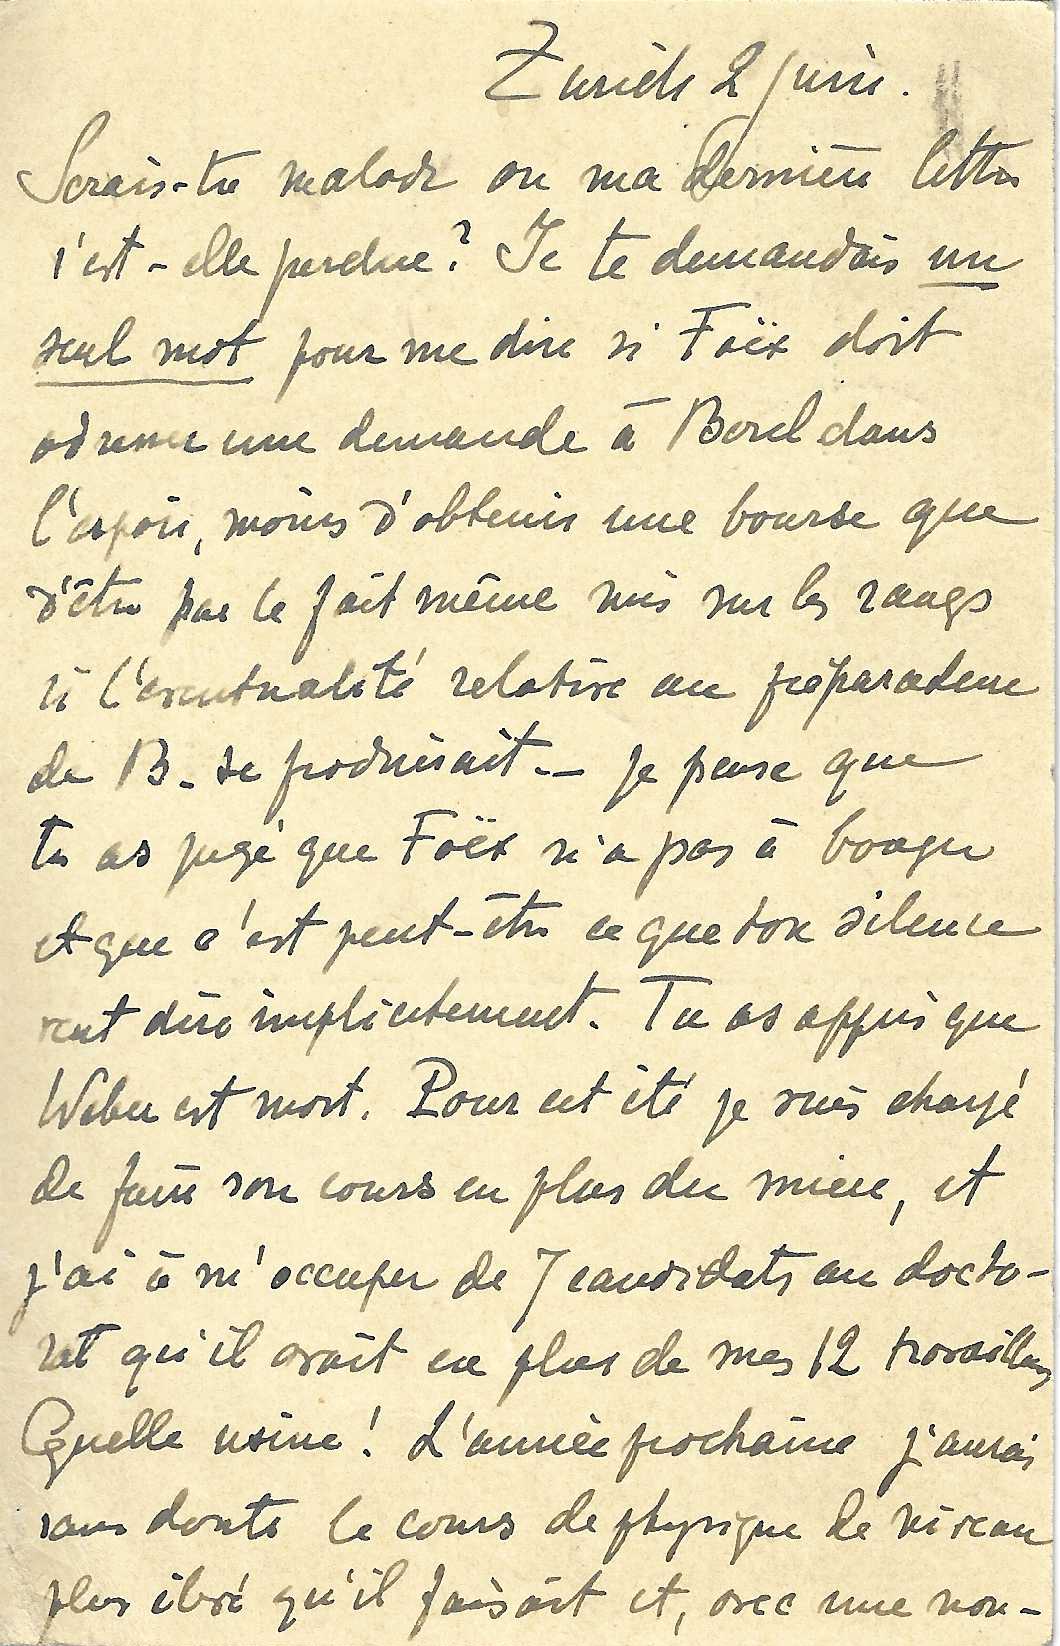 Zurich 2 juin.
Serais-tu malade ou ma dernière lettre
s'est-elle perdue? Je te demandais un
seul mot pour me dire si Foëx doit
adresser une demande à Borel dans
l'espoir, moins d'obtenir une bourse que
d'être par le fait même mis sur les rangs
si l'éventualité relative au préparateur
de B. se produisait. – je pense que
tu as jugé que Foëx n'a pas à bouger
et que c'est peut-être ce que ton silence
veut dire implicitement. Tu as appris que
Weber est mort. Pour cet été je suis chargé
de faire son cours en plus du mien, et
j'ai à m'occuper de 7 candidats au docto-
rat qu'il avait en plus de mes 12 travailleurs
Quelle usine! L'année prochaine j'aurai
sans doute le cours de physique de niveau
plus élevé qu'il faisait et, avec une nou-